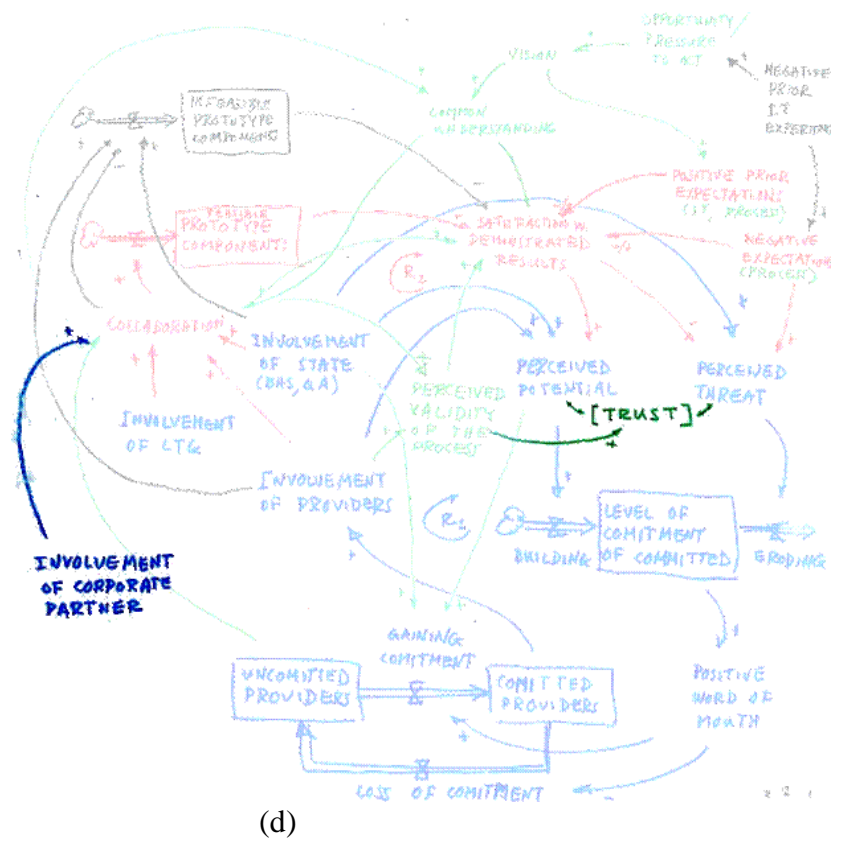 OPPORTUNITY/
PRESSURE
TO ACT
VISION
NEGATIVE
PRIOR
I.T
EXPERIENC
INFEASIBLE
PROTOTYPE
COMPONENTS
COMMON
UNDERSTANDING
POSITIVE PRIOR
EXPECTATIONS
(IT, PROCESS)
FEASIBLE
PROTOTYPE
COMPONENTS
SATISFACTION W.
DEMONSTRATED
RESULTS
NEGATIVE
EXPECTATIONS
(PROCESS)
R2
COLLABORATION
INVOLVEMENT
OF STATE
(DHS, QA)
PERCEIVED
POTENTIAL
PERCEIVED
THREAT
PERCEIVED
VALIDITY
OF THE
PROCESS
[TRUST]
INVOLVEMENT
OF LTG
INVOLVEMENT
OF PROVIDERS
BUILDING
LEVEL OF
COMITMENT
OF COMMITTED
ERODING
INVOLVEMENT
OF CORPORATE
PARTNER
GAINING
COMITMENT
UNCOMITTED
PROVIDERS
COMITTED
PROVIDERS
POSITIVE
WORD OF
MOUTH
LOSS OF COMITMENT
(d)